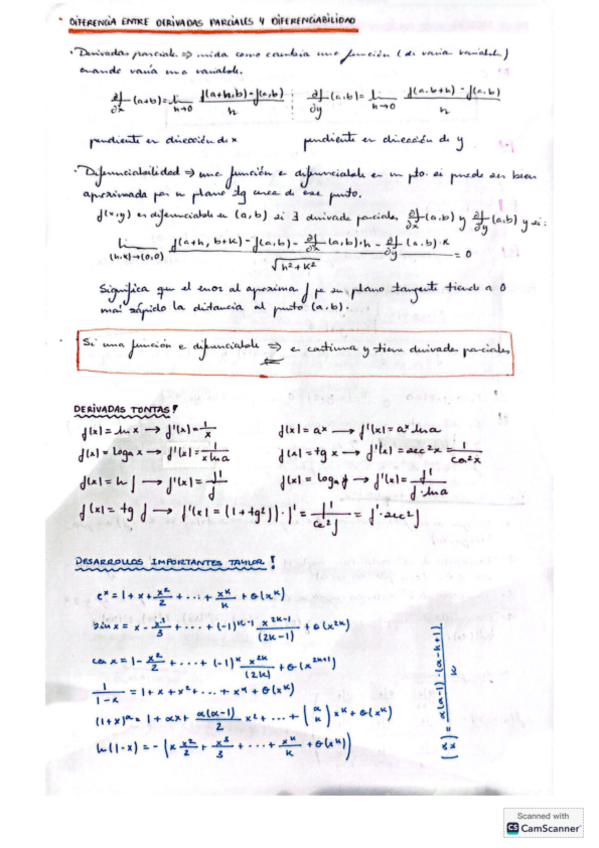 · DIFERENCIA ENTRE DERIVADAS PARCIALES Y DIFERENCIABILIDAD
· Derivadas parciales => mida como cambia una función (de varias variables)
cuando varía una variable.
∂f/∂x (a+b) = lim h→0 f(a+h,b) - f(a,b) / h    ∂f/∂y (a,b) = lim h→0 f(a,b+h) - f(a,b) / h
pendiente en dirección de x    pendiente en dirección de y
· Diferenciabilidad => una función es diferenciable en un pto. si puede ser bien
aproximada por un plano tg cerca de ese punto.
f(x,y) es diferenciable en (a,b) si ∃ derivadas parciales ∂f/∂x (a,b) y ∂f/∂y (a,b) y si:
lim (h,k)→(0,0) f(a+h, b+k) - f(a,b) - ∂f/∂x (a,b)·h - ∂f/∂y (a,b)·k / √h²+k² = 0
Significa que el error al aproximar f por su plano tangente tiende a 0
más rápido la distancia al punto (a,b).
Si una función es diferenciable => es continua y tiene derivadas parciales
DERIVADAS TONTAS!
f(x) = ln x → f'(x) = 1/x    f(x) = aˣ → f'(x) = aˣ ln a
f(x) = logₐ x → f'(x) = 1/x ln a    f(x) = tg x → f'(x) = sec² x = 1/cos² x
f(x) = ln f → f'(x) = f'/f    f(x) = logₐ f → f'(x) = f'/f·ln a
f(x) = tg f → f'(x) = (1+tg² f)·f' = f'/cos² f = f'·sec² f
DESARROLLOS IMPORTANTES TAYLOR!
eˣ = 1 + x + x²/2 + ... + xᵏ/k + θ(xᵏ)
sin x = x - x³/3 + ... + (-1)ᵏ⁻¹ x²ᵏ⁻¹/(2k-1) + θ(x²ᵏ)
cos x = 1 - x²/2 + ... + (-1)ᵏ x²ᵏ/(2k) + θ(x²ᵏ⁺¹)
1/1-x = 1 + x + x² + ... + xᵏ + θ(xᵏ)
(1+x)^α = 1 + αx + α(α-1)/2 x² + ... + (α k) xᵏ + θ(xᵏ)
ln(1-x) = -(x x²/2 + x³/3 + ... + xᵏ/k + θ(xᵏ))
(α k) = α(α-1)·(α-k+1)/k
Scanned with
CS CamScanner